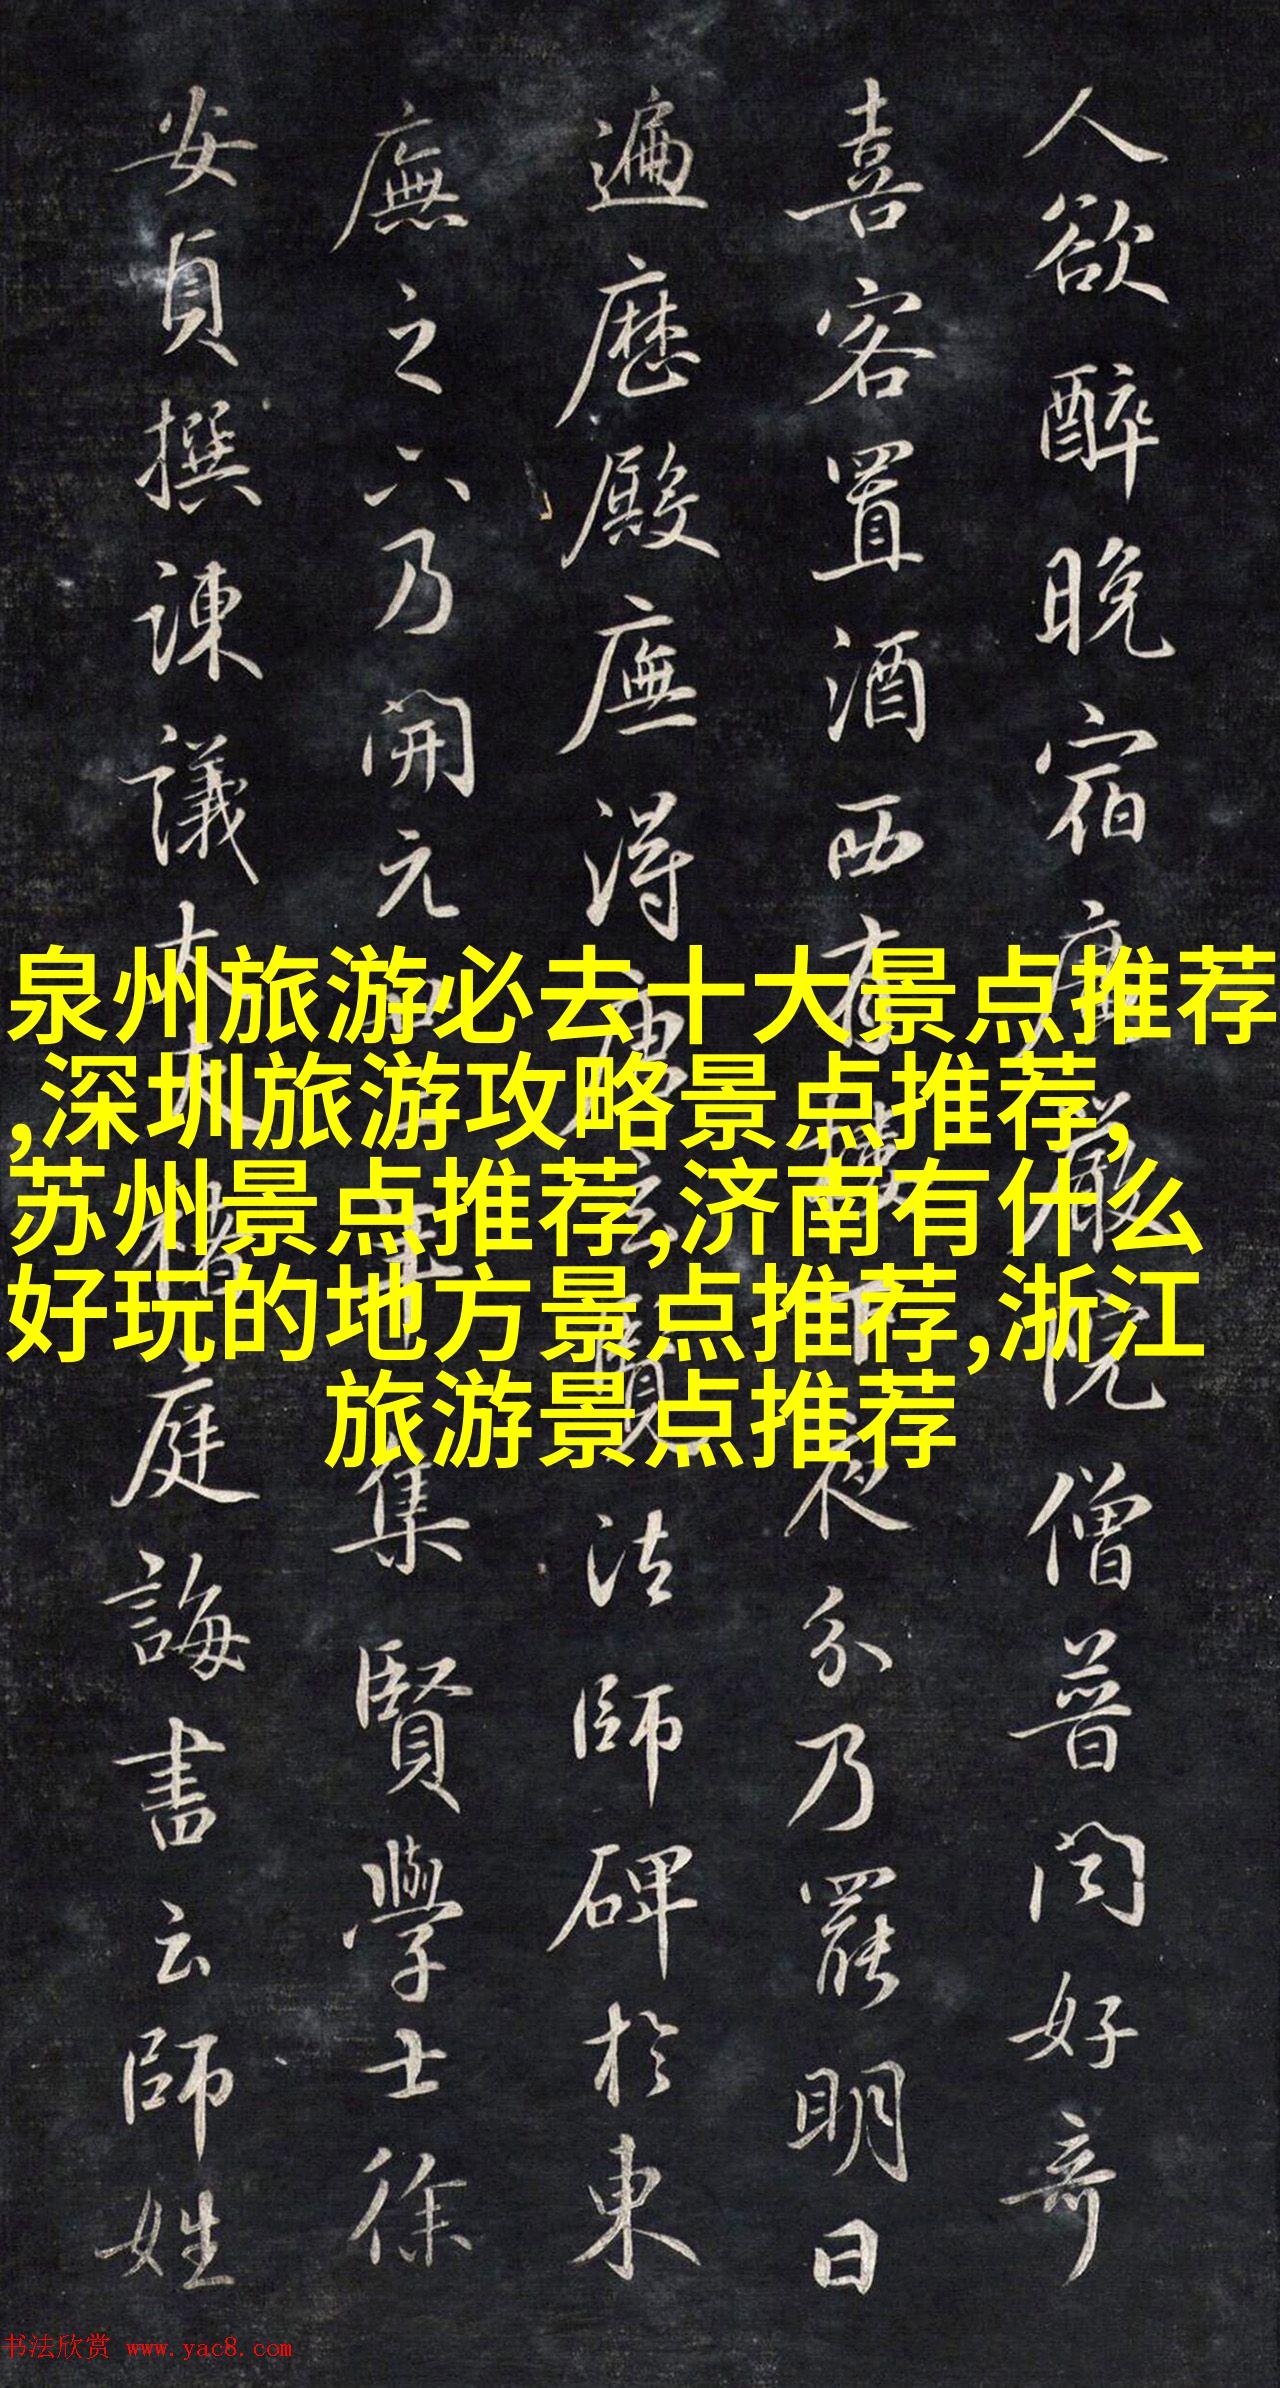 人欲醉晚宿廣嚴院僧普好奇
喜客置酒西夜分乃罷明日
遍歷殿廡得唐玄覽法師碑於東
廡之下乃開元集賢學士徐
安貞撰諫議大夫褚庭誨書云師姓
泉州旅游必去十大景点推荐
,深圳旅游攻略景点推荐,
苏州景点推荐,济南有什么
好玩的地方景点推荐,浙江
旅游景点推荐
书法欣赏 www.yac8.com